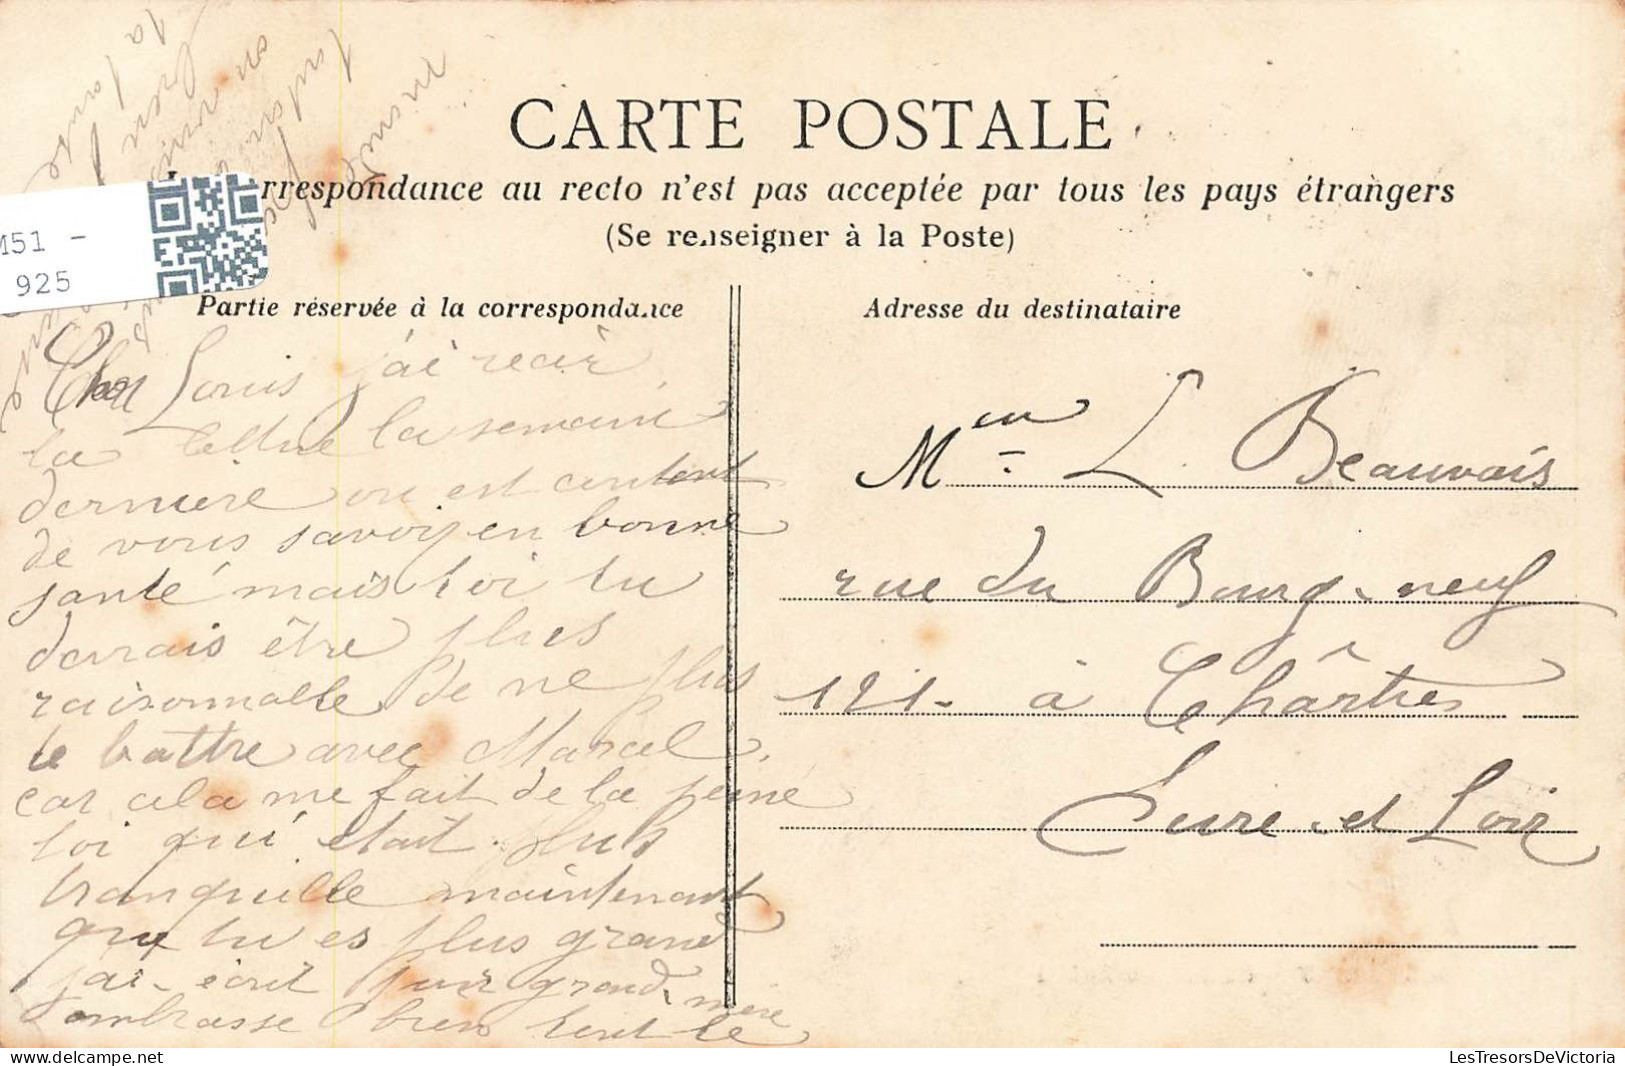 CARTE POSTALE
rrespondance au recto n'est pas acceptée par tous les pays étrangers
(Se renseigner à la Poste)
M51 -
925
Partie réservée à la correspondance
Adresse du destinataire
Cher Louis j'ai recu
la lettre la semaine
derniere on est content
de vous savoir en bonne
santé mais toi tu
devrais être plus
raisonnable de ne plus
te battre avec Marcel
car cela me fait de la peine
toi qui était plus
tranquille maintenant
que tu es plus grand
j'ai écrit pour grand mère
embrasse bien tout le
monde
Men L. Beauvais
rue du Bourg-neuf
121- à Chârtres
Eure et Loir
LesTresorsDeVictoria - Delcampe.net